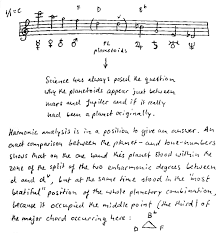 1/1=c D b♭
planetoids
Science has always posed the question
why the planetoids appear just between
mars and Jupiter and if it really
had been a planet originally.
Harmonic analysis is in a position to give an answer. An
exact comparison between the planet- and tone-numbers
shows that on the one hand this planet stood within the
zone of the split of the two enharmonic degrees between
d and d♭, but at the same time stood in the "most
beatiful" position of the whole planetary combination,
because it occupied the middle point (the third) of
the major chord occurring here:
B♭
D F